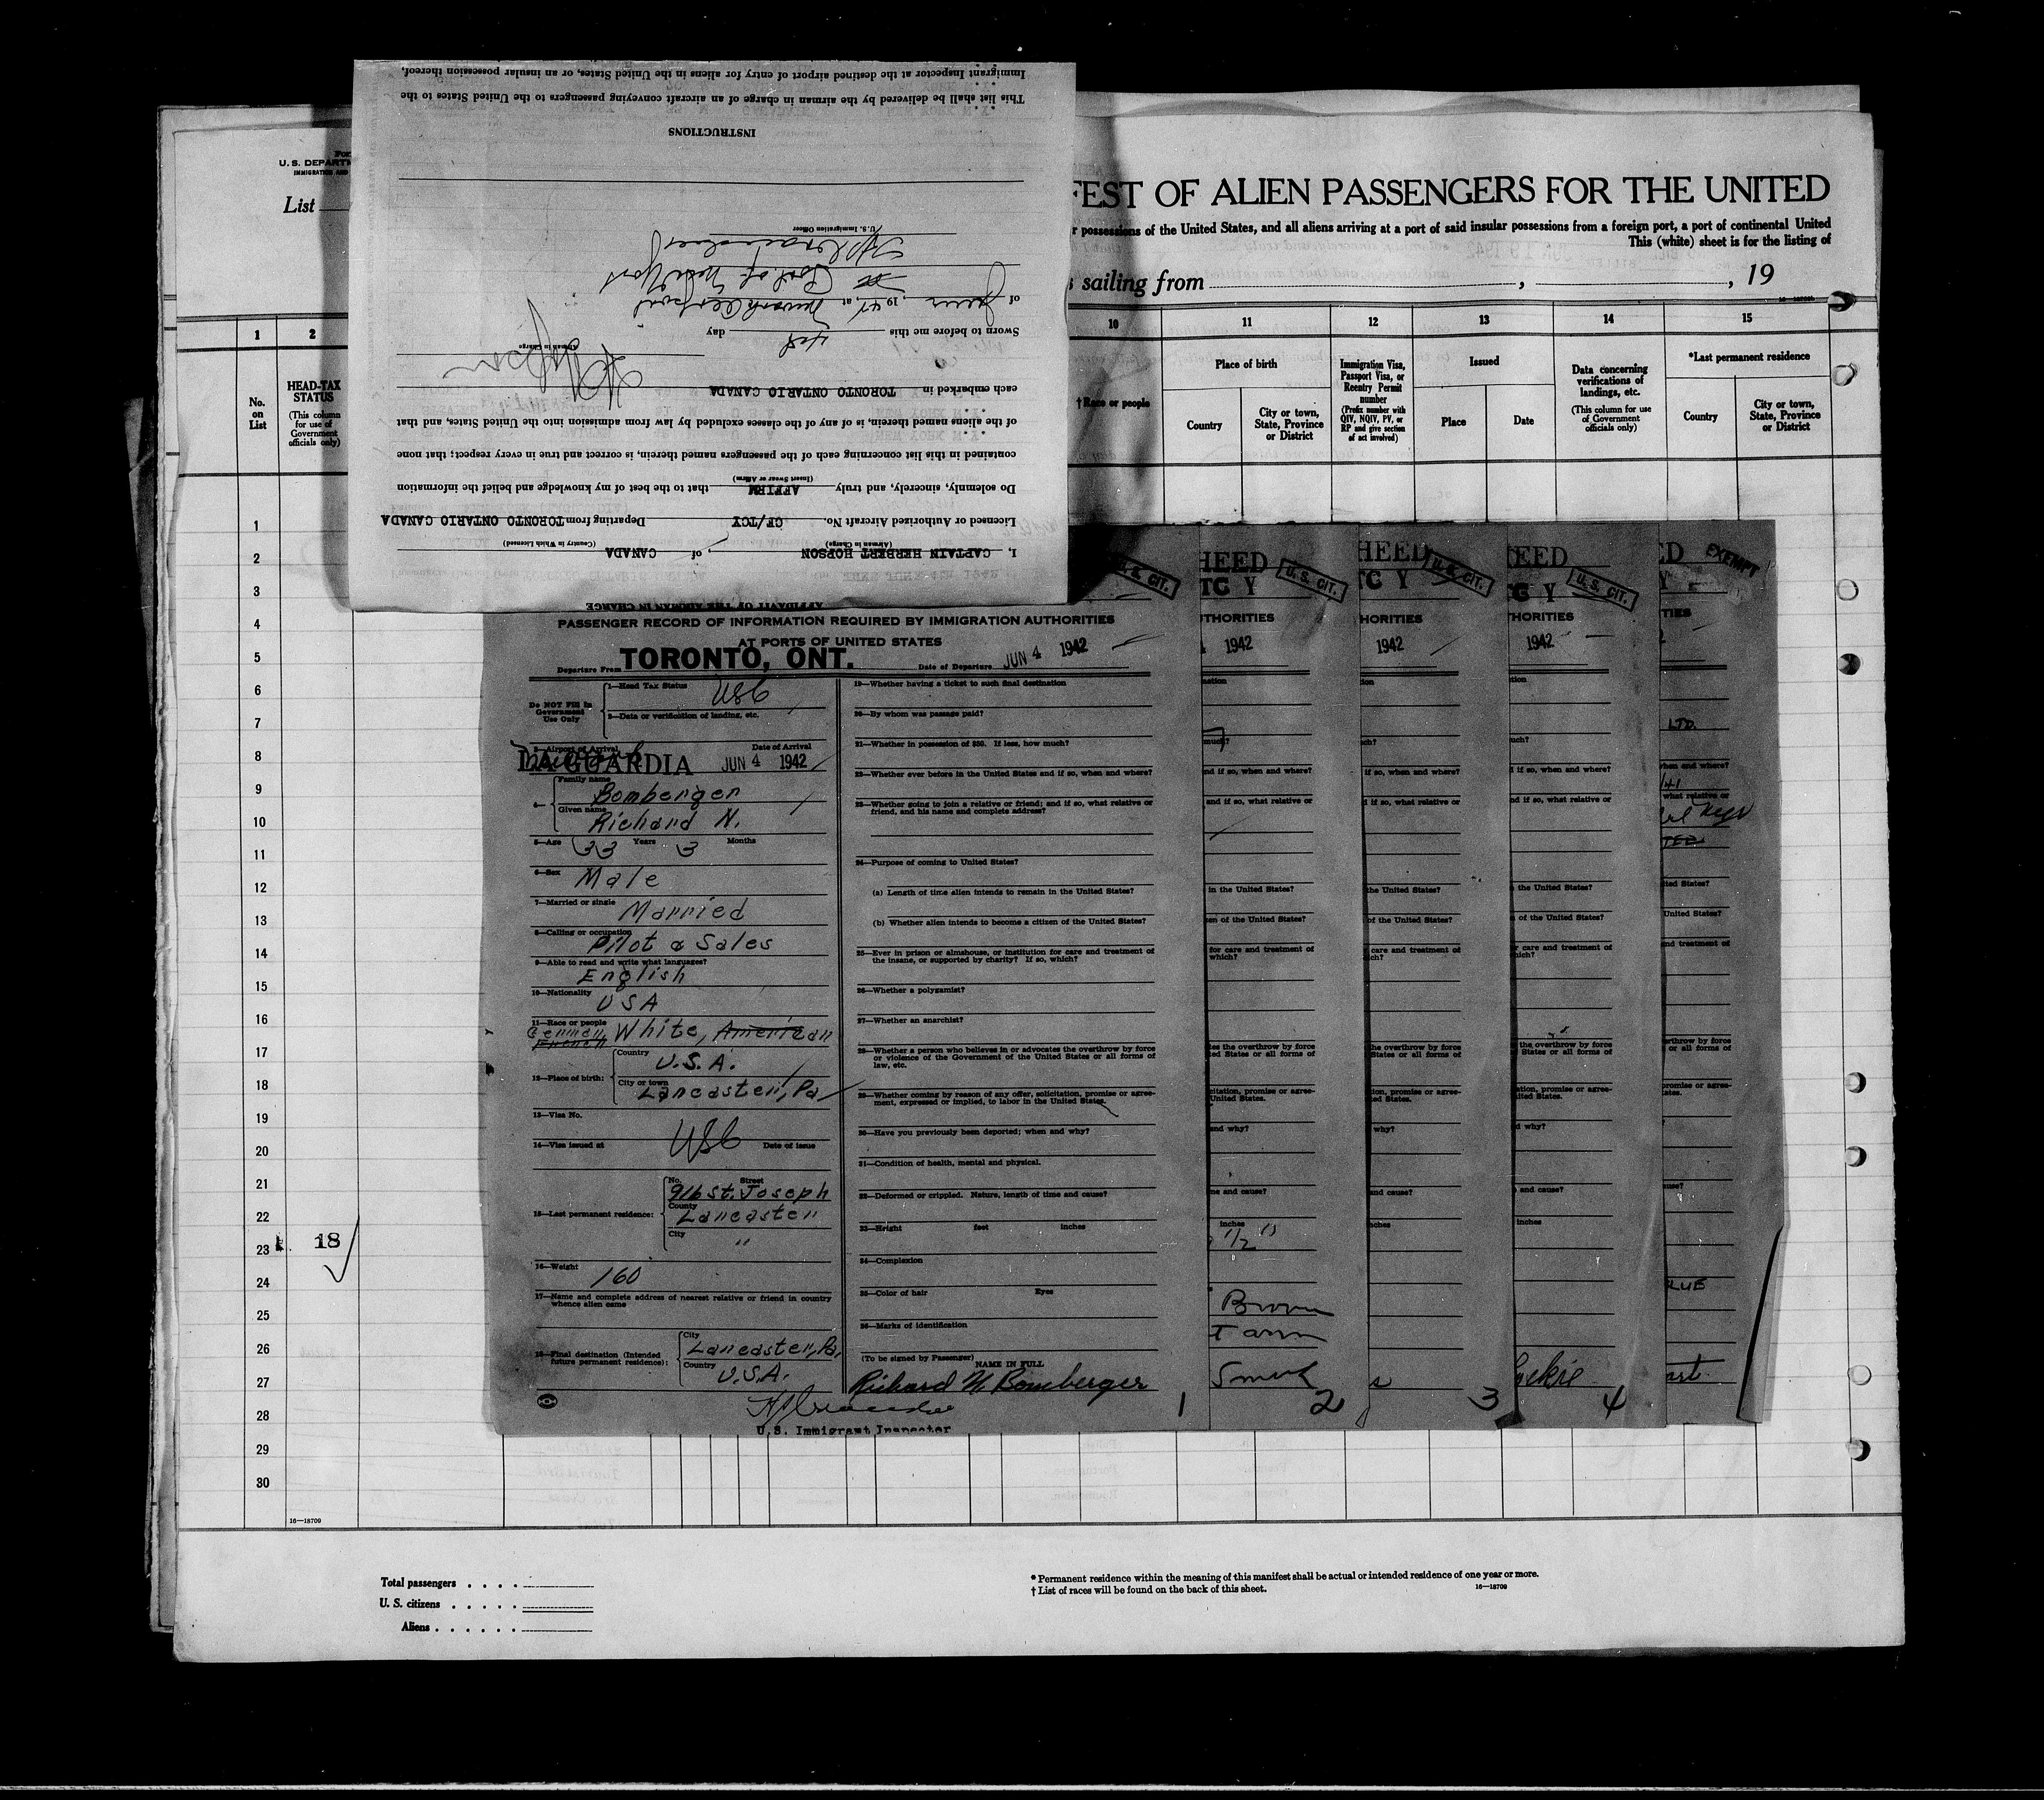 For
U. S. DEPARTM
IMMIGRATION AND
List
FEST OF ALIEN PASSENGERS FOR THE UNITED
r possessions of the United States, and all aliens arriving at a port of said insular possessions from a foreign port, a port of continental United
This (white) sheet is for the listing of
s sailing from , , 19
1 2 10 11 12 13 14 15
No. on List
HEAD-TAX STATUS
(This column for use of Government officials only)
† Race or people
Place of birth
Country
City or town, State, Province or District
Immigration Visa, Passport Visa, or Reentry Permit number
(Prefix number with QIV, NQIV, PV, or RP and give section of act involved)
Issued
Place
Date
Data concerning verifications of landings, etc.
(This column for use of Government officials only)
*Last permanent residence
Country
City or town, State, Province or District
AFFIDAVIT OF THE AIRMAN IN CHARGE
I, CAPTAIN HERBERT HOPSON, of CANADA
(Airman in Charge) (Country in Which Licensed)
Licensed or Authorized Aircraft No. CF/TCY Departing from TORONTO ONTARIO CANADA
Do solemnly, sincerely, and truly AFFIRM that to the best of my knowledge and belief the information
(Insert Swear or Affirm)
contained in this list concerning each of the passengers named therein, is correct and true in every respect; that none
of the aliens named therein, is of any of the classes excluded by law from admission into the United States, and that
each embarked in TORONTO ONTARIO CANADA
Airman in Charge
Sworn to before me this 4th day
of June, 19 42, at
Port of New York
U. S. Immigration Officer
INSTRUCTIONS
This list shall be delivered by the airman in charge of an aircraft conveying passengers to the United States to the
Immigrant Inspector at the destined airport of entry for aliens in the United States, or an insular possession thereof.
1
2
3
4
5
6
7
8
9
10
11
12
13
14
15
16
17
18
19
20
21
22
23 18
24
25
26
27
28
29
30
16—18709
PASSENGER RECORD OF INFORMATION REQUIRED BY IMMIGRATION AUTHORITIES
AT PORTS OF UNITED STATES
Departure From TORONTO, ONT. Date of Departure JUN 4 1942
Do NOT Fill In Government Use Only
1—Head Tax Status USC
2—Data or verification of landing, etc.
3—Airport of Arrival Date of Arrival
LA GUARDIA JUN 4 1942
4— Family name
Bomberger
Given name
Richard N.
5—Age 33 Years 3 Months
6—Sex Male
7—Married or single Married
8—Calling or occupation
Pilot & Sales
9—Able to read and write what languages?
English
10—Nationality
USA
11—Race or people
German, French White, American
12—Place of birth: Country
U.S.A.
City or town
Lancaster, Pa.
13—Visa No.
14—Visa issued at USC Date of issue
15—Last permanent residence: No. Street
916 St. Joseph
County
Lancaster
City
"
16—Weight
160
17—Name and complete address of nearest relative or friend in country whence alien came
18—Final destination (Intended future permanent residence):
City
Lancaster, Pa.
Country
U.S.A.
U.S. Immigrant Inspector
19—Whether having a ticket to such final destination
20—By whom was passage paid?
21—Whether in possession of $50. If less, how much?
22—Whether ever before in the United States and if so, when and where?
23—Whether going to join a relative or friend; and if so, what relative or friend, and his name and complete address?
24—Purpose of coming to United States?
(a) Length of time alien intends to remain in the United States?
(b) Whether alien intends to become a citizen of the United States?
25—Ever in prison or almshouse, or institution for care and treatment of the insane, or supported by charity? If so, which?
26—Whether a polygamist?
27—Whether an anarchist?
28—Whether a person who believes in or advocates the overthrow by force or violence of the Government of the United States or all forms of law, etc.
29—Whether coming by reason of any offer, solicitation, promise or agreement, expressed or implied, to labor in the United States.
30—Have you previously been deported; when and why?
31—Condition of health, mental and physical.
32—Deformed or crippled. Nature, length of time and cause?
33—Height feet inches
34—Complexion
35—Color of hair Eyes
36—Marks of identification
(To be signed by Passenger)
NAME IN FULL
Richard N. Bomberger
1
HEED
TC Y
U. S. CIT.
1942
Brown
2
HEED
TC Y
U. S. CIT.
1942
3
EED
U. S. CIT.
1942
4
ED
EXEMPT
LTD.
Total passengers . . . .
U. S. citizens . . . . .
Aliens . . . . . .
* Permanent residence within the meaning of this manifest shall be actual or intended residence of one year or more.
† List of races will be found on the back of this sheet.
16—18709